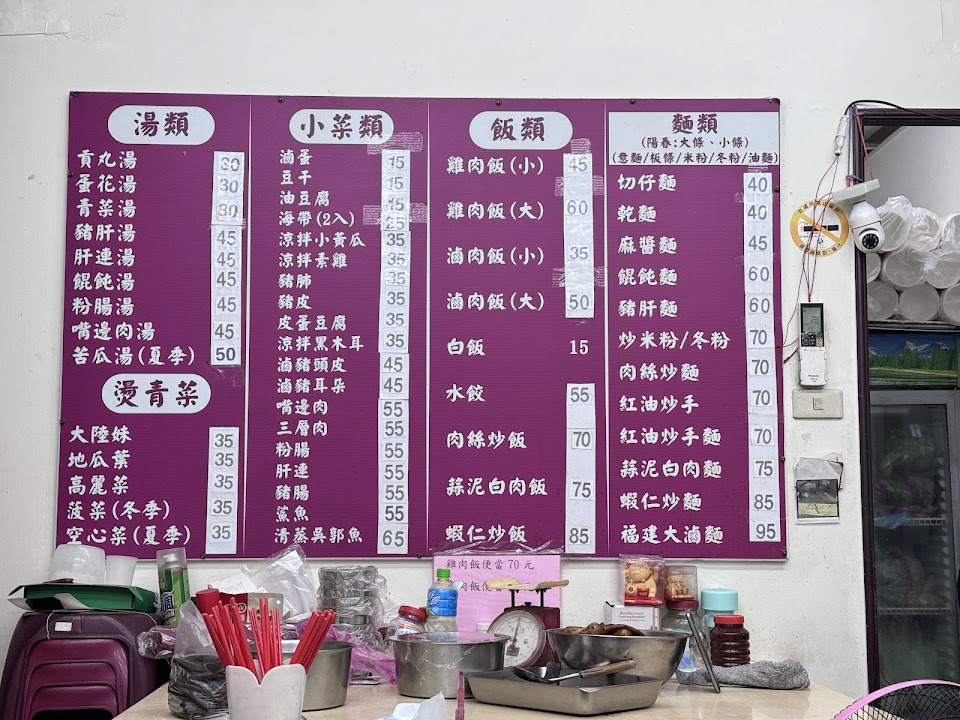 湯類
貢丸湯 30
蛋花湯 30
青菜湯 30
豬肝湯 45
肝連湯 45
餛飩湯 45
粉腸湯 45
嘴邊肉湯 45
苦瓜湯(夏季) 50
燙青菜
大陸妹 35
地瓜葉 35
高麗菜 35
菠菜(冬季) 35
空心菜(夏季) 35
小菜類
滷蛋 15
豆干 15
油豆腐 15
海帶(2入) 25
涼拌小黃瓜 35
涼拌素雞 35
豬肺 35
豬皮 35
皮蛋豆腐 35
涼拌黑木耳 35
滷豬頭皮 45
滷豬耳朵 45
嘴邊肉 55
三層肉 55
粉腸 55
肝連 55
豬腸 55
鯊魚 55
清蒸吳郭魚 65
飯類
雞肉飯(小) 45
雞肉飯(大) 60
滷肉飯(小) 35
滷肉飯(大) 50
白飯 15
水餃 55
肉絲炒飯 70
蒜泥白肉飯 75
蝦仁炒飯 85
麵類
(陽春:大條、小條)
(意麵/板條/米粉/冬粉/油麵)
切仔麵 40
乾麵 40
麻醬麵 45
餛飩麵 60
豬肝麵 60
炒米粉/冬粉 70
肉絲炒麵 70
紅油炒手 70
紅油炒手麵 70
蒜泥白肉麵 75
蝦仁炒麵 85
福建大滷麵 95
雞肉飯便當 70元
肉飯便當